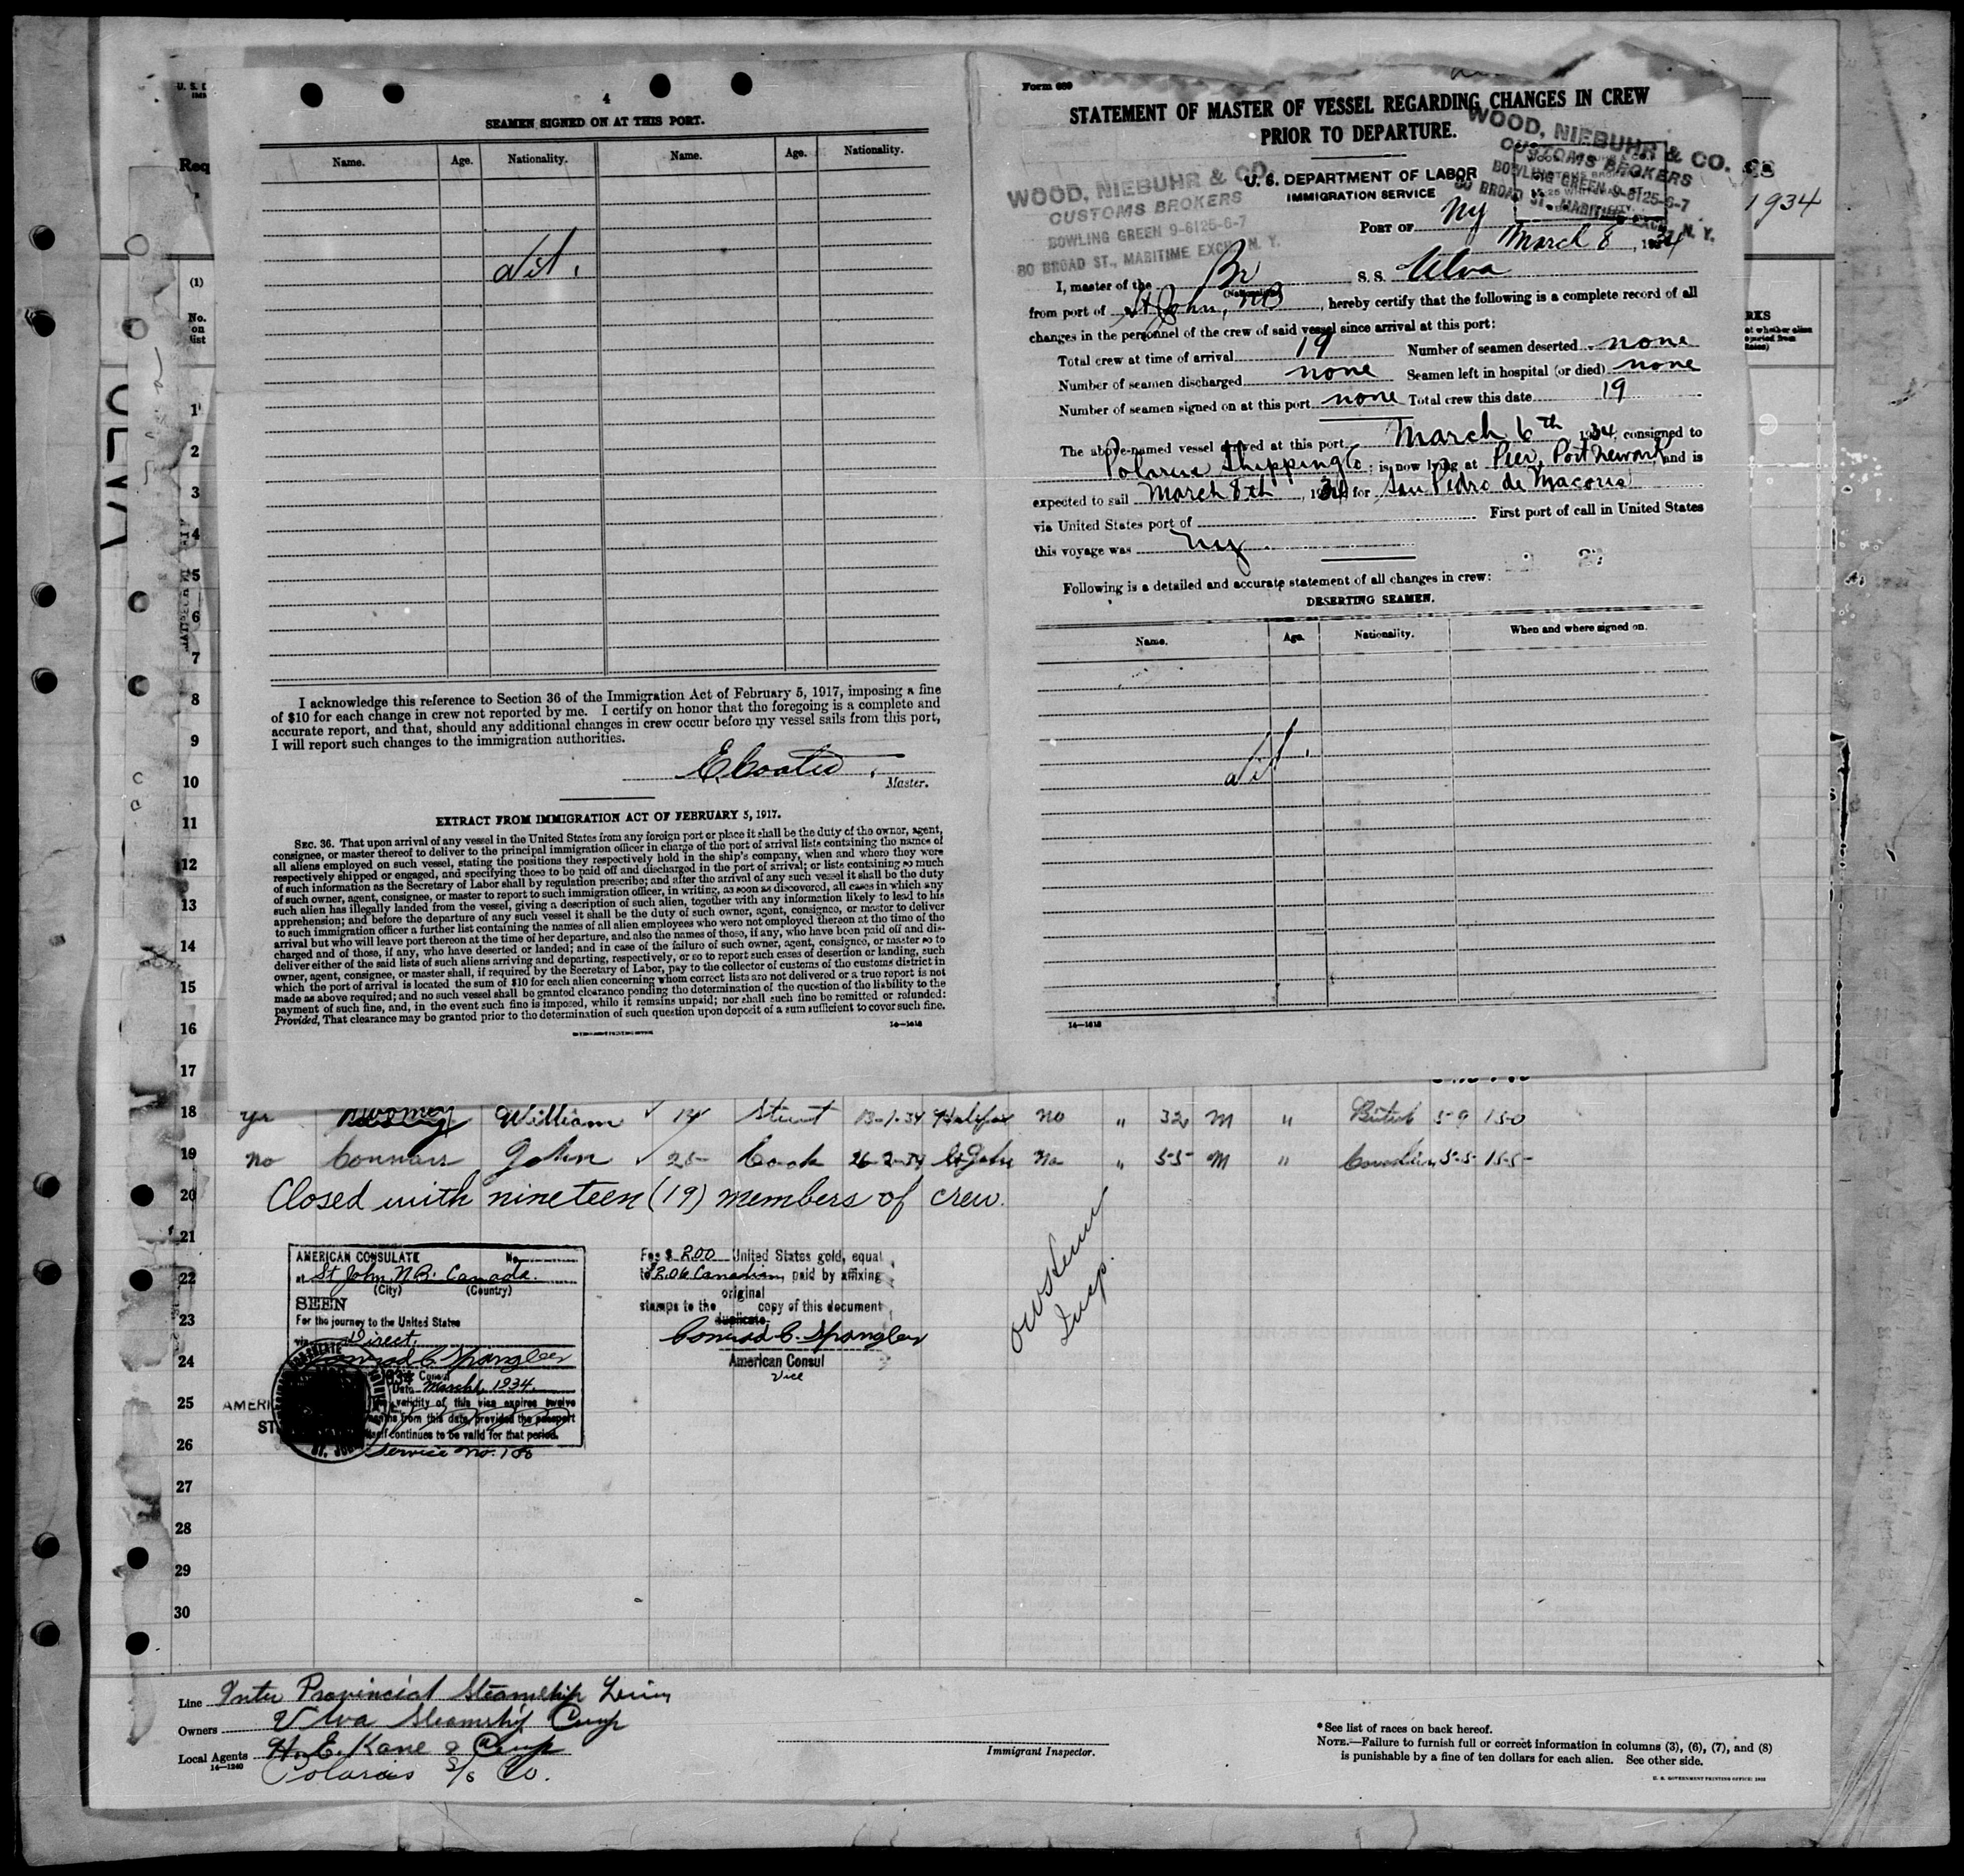 4
SEAMEN SIGNED ON AT THIS PORT.
Name. Age. Nationality. Name. Age. Nationality.
Nil.
I acknowledge this reference to Section 36 of the Immigration Act of February 5, 1917, imposing a fine
of $10 for each change in crew not reported by me. I certify on honor that the foregoing is a complete and
accurate report, and that, should any additional changes in crew occur before my vessel sails from this port,
I will report such changes to the immigration authorities.
Master.
EXTRACT FROM IMMIGRATION ACT OF FEBRUARY 5, 1917.
SEC. 36. That upon arrival of any vessel in the United States from any foreign port or place it shall be the duty of the owner, agent,
consignee, or master thereof to deliver to the principal immigration officer in charge of the port of arrival lists containing the names of
all aliens employed on such vessel, stating the positions they respectively hold in the ship's company, when and where they were
respectively shipped or engaged, and specifying those to be paid off and discharged in the port of arrival; or lists containing so much
of such information as the Secretary of Labor shall by regulation prescribe; and after the arrival of any such vessel it shall be the duty
of such owner, agent, consignee, or master to report to such immigration officer, in writing, as soon as discovered, all cases in which any
such alien has illegally landed from the vessel, giving a description of such alien, together with any information likely to lead to his
apprehension; and before the departure of any such vessel it shall be the duty of such owner, agent, consignee, or master to deliver
to such immigration officer a further list containing the names of all alien employees who were not employed thereon at the time of the
arrival but who will leave port thereon at the time of her departure, and also the names of those, if any, who have been paid off and dis-
charged and of those, if any, who have deserted or landed; and in case of the failure of such owner, agent, consignee, or master so to
deliver either of the said lists of such aliens arriving and departing, respectively, or so to report such cases of desertion or landing, such
owner, agent, consignee, or master shall, if required by the Secretary of Labor, pay to the collector of customs of the customs district in
which the port of arrival is located the sum of $10 for each alien concerning whom correct lists are not delivered or a true report is not
made as above required; and no such vessel shall be granted clearance pending the determination of the question of the liability to the
payment of such fine, and, in the event such fine is imposed, while it remains unpaid; nor shall such fine be remitted or refunded:
Provided, That clearance may be granted prior to the determination of such question upon deposit of a sum sufficient to cover such fine.
14—1618
Form 689
STATEMENT OF MASTER OF VESSEL REGARDING CHANGES IN CREW
PRIOR TO DEPARTURE.
U. S. DEPARTMENT OF LABOR
IMMIGRATION SERVICE
WOOD, NIEBUHR & CO.
CUSTOMS BROKERS
BOWLING GREEN 9-6125-6-7
80 BROAD ST., MARITIME EXCH. N. Y.
WOOD, NIEBUHR & CO.
CUSTOMS BROKERS
BOWLING GREEN 9-6125-6-7
80 BROAD ST., MARITIME EXCH. N. Y.
PORT OF NY
March 8, 1934
I, master of the Br S. S. Ulva
(Nationality)
from port of St John, NB, hereby certify that the following is a complete record of all
changes in the personnel of the crew of said vessel since arrival at this port:
Total crew at time of arrival 19 Number of seamen deserted none
Number of seamen discharged none Seamen left in hospital (or died) none
Number of seamen signed on at this port none Total crew this date 19
The above-named vessel arrived at this port March 6th, 1934, consigned to
Polarus Shipping Co; is now lying at Pier, Port Newark and is
expected to sail March 8th, 1934 for San Pedro de Macoris
via United States port of First port of call in United States
this voyage was NY
Following is a detailed and accurate statement of all changes in crew:
DESERTING SEAMEN.
Name. Age. Nationality. When and where signed on.
Nil.
14—1618
1934
(1)
No. on list
1
2
3
4
5
6
7
8
9
10
11
12
13
14
15
16
17
18 yes William 14 13-1-34 Halifax no " 32 M " British 5-9 150
19 no Connors John 25 Cook 26-2-34 St John No " 55 M " Canadian 5-5 155
20 Closed with nineteen (19) members of crew.
21
22
23
24
25
26
27
28
29
30
AMERICAN CONSULATE No.
at St John N.B. Canada.
(City) (Country)
SEEN
For the journey to the United States
via Direct.
Conrad C. Spangler
Consul
Date March 1, 1934
validity of this visa expires twelve
months from this date, provided the passport
itself continues to be valid for that period.
Service No. 188
Fee $ 2.00 United States gold, equal
to $2.06 Canadian, paid by affixing
original
stamps to the copy of this document
duplicate
Conrad C. Spangler
American Consul
Vice
Insp.
Line Inter Provincial Steamship Lines
Owners Ulva Steamship Comp
Local Agents H. E. Kane & Comp
14—1240
Polarus S/S Co.
Immigrant Inspector.
*See list of races on back hereof.
NOTE.—Failure to furnish full or correct information in columns (3), (6), (7), and (8)
is punishable by a fine of ten dollars for each alien. See other side.
U. S. GOVERNMENT PRINTING OFFICE: 1932